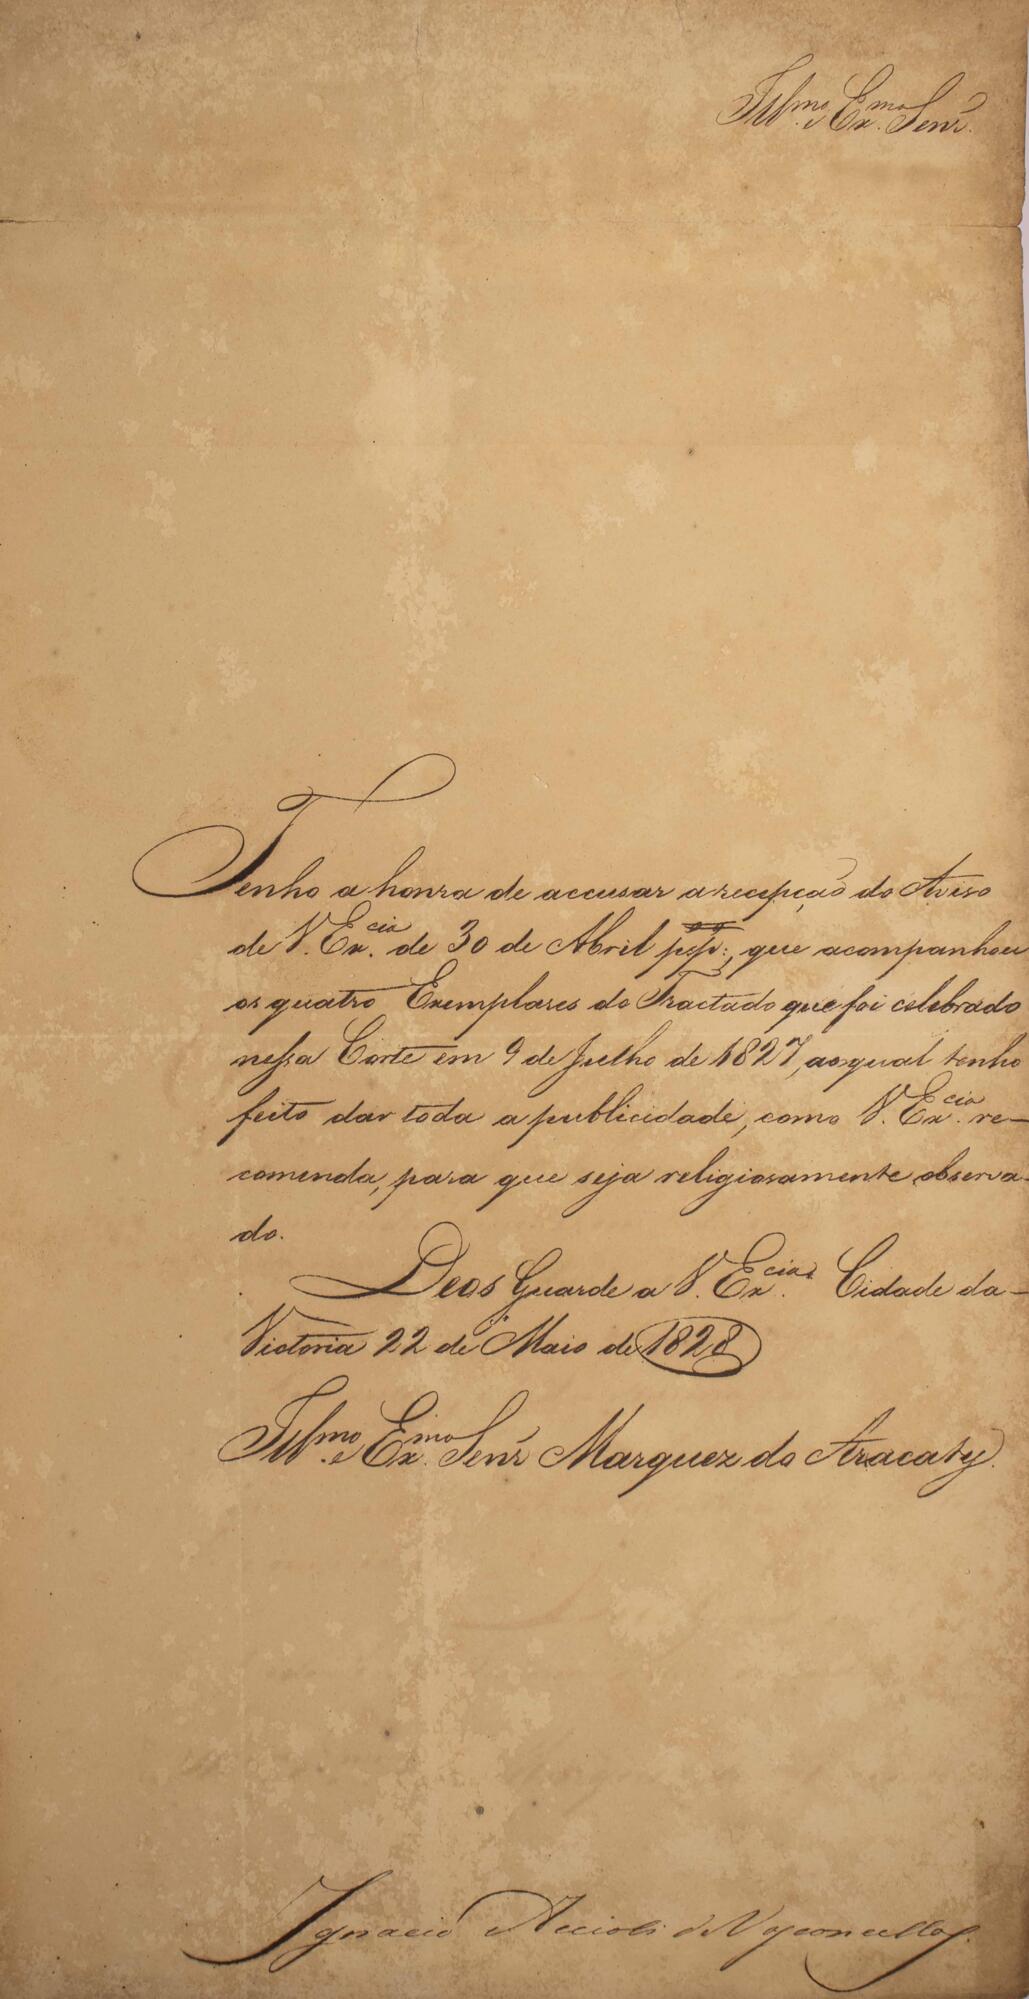 Ill.mo e Ex.mo Senr.
Tenho a honra de accusar a recepção do Aviso
de V. Ex.cia de 30 de Abril pp:, que acompanhou
os quatro Exemplares do Tractado que foi celebrado
nessa Corte em 9 de Julho de 1827, ao qual tenho
feito dar toda a publicidade, como V. Ex.cia re-
comenda, para que seja religiosamente observa-
do.
Deos Guarde a V. Ex.cia Cidade da
Victoria 22 de Maio de 1828
Ill.mo e Ex.mo Senr Marquez do Aracaty.
Ignacio Accioli de Vasconcellos.